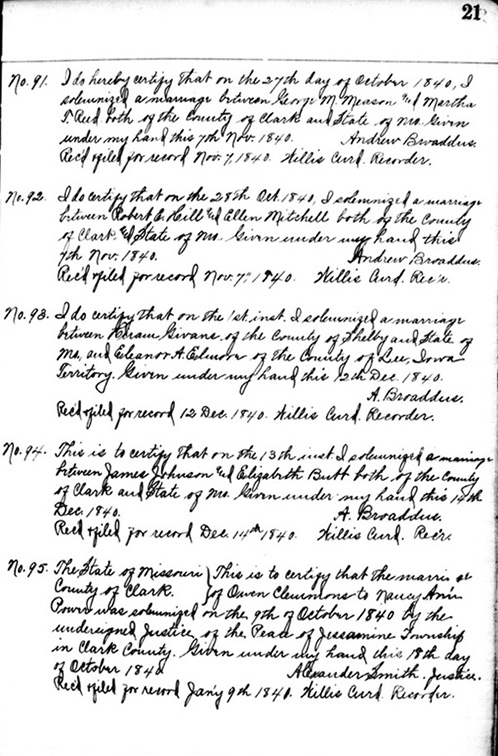 21
No. 91. I do hereby certify that on the 27th day of October 1840, I
solemnized a marriage between George M. Meason and Martha
T. Reed both of the County of Clark and State of Mo. Given
under my hand this 7th Nov. 1840. Andrew Broaddus.
Rec'd & filed for record Nov. 7, 1840. Willis Curd. Recorder.
No. 92. I do certify that on the 28th Oct. 1840, I solemnized a marriage
between Robert C. Hill and Ellen Mitchell both of the County
of Clark and State of Mo. Given under my hand this
7th Nov. 1840. Andrew Broaddus.
Rec'd & filed for record Nov. 7" 1840. Willis Curd. Rec'r.
No. 93. I do certify that on the 1st. inst. I solemnized a marriage
between Hiram Givans. of the County of Shelby and State of
Mo, and Eleanor A. of the County of Lee, Iowa
Territory. Given under my hand this 12th Dec. 1840.
A. Broaddus.
Rec'd & filed for record 12 Dec. 1840. Willis Curd. Recorder.
No. 94. This is to certify that on the 13th inst. I solemnized a marriage
between James Johnson and Elizabeth Butt both of the County
of Clark and State of Mo. Given under my hand this 14th
Dec. 1840. A. Broaddus.
Rec'd & filed for record Dec. 14th 1840. Willis Curd. Rec'r.
No. 95. The State of Missouri } This is to certify that the
County of Clark. } of Owen Clemmons to Nancy Ann
was solemnized on the 9th of October 1840 by the
undersigned Justice of the Peace of Jessamine Township
in Clark County. Given under my hand this 18th day
of October 1840 Alexander Smith. Justice.
Rec'd & filed for record Jan'y 9th 1840. Willis Curd. Recorder.